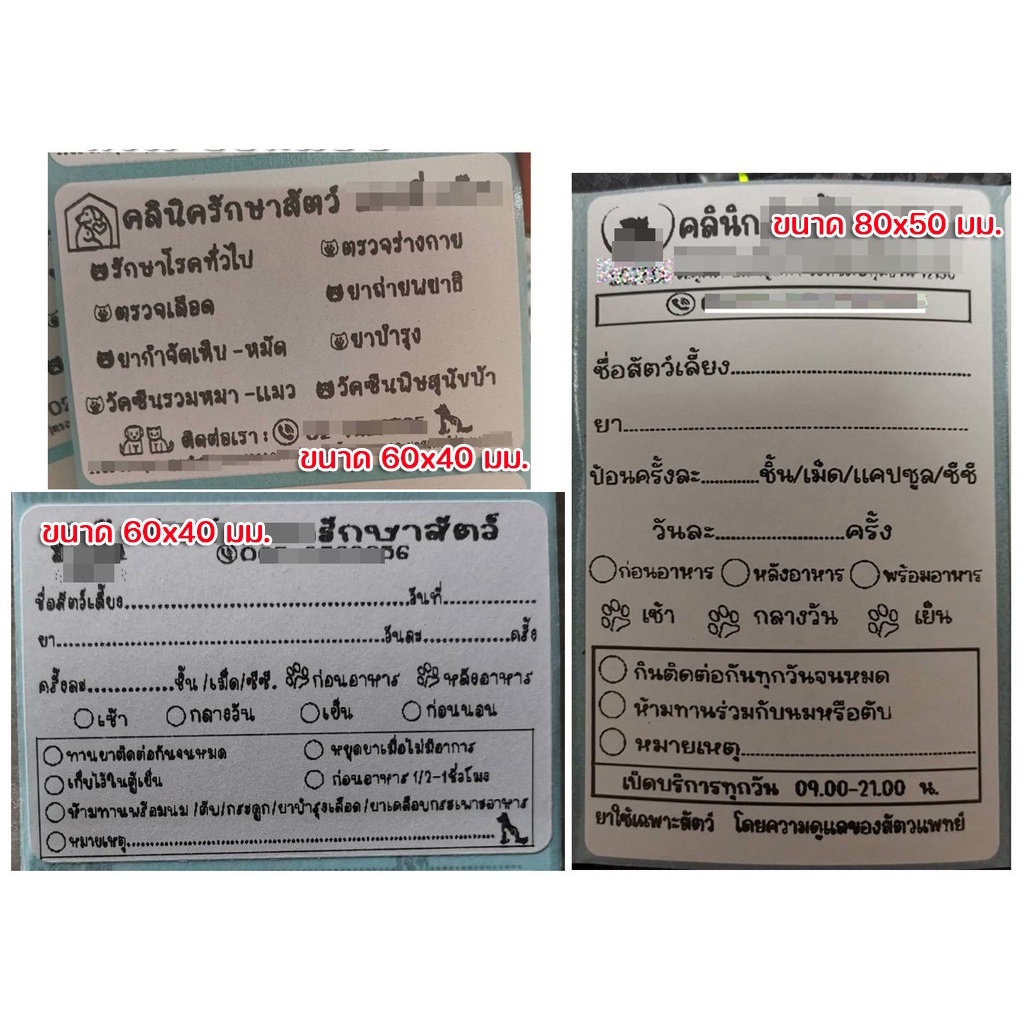 คลินิครักษาสัตว์
รักษาโรคทั่วไป
ตรวจร่างกาย
ตรวจเลือด
ยาถ่ายพยาธิ
ยากำจัดเห็บ -หมัด
ยาบำรุง
วัคซีนรวมหมา -แมว
วัคซีนพิษสุนัขบ้า
ติดต่อเรา :
ขนาด 60x40 มม.
ขนาด 60x40 มม.
รักษาสัตว์
ชื่อสัตว์เลี้ยง..............................วันที่..............
ยา..............................วันละ..............ครั้ง
ครั้งละ..............ชิ้น /เม็ด/ซีซี. ก่อนอาหาร หลังอาหาร
เช้า กลางวัน เย็น ก่อนนอน
ทานยาติดต่อกันจนหมด
หยุดยาเมื่อไม่มีอาการ
เก็บไว้ในตู้เย็น
ก่อนอาหาร 1/2-1ชั่วโมง
ห้ามทานพร้อมนม /ตับ/กระดูก/ยาบำรุงเลือด/ยาเคลือบกระเพาะอาหาร
หมายเหตุ..............................
คลินิก
ขนาด 80x50 มม.
ชื่อสัตว์เลี้ยง..............................
ยา..............................
ป้อนครั้งละ............ชิ้น/เม็ด/แคปซูล/ซีซี
วันละ..............ครั้ง
ก่อนอาหาร หลังอาหาร พร้อมอาหาร
เช้า กลางวัน เย็น
กินติดต่อกันทุกวันจนหมด
ห้ามทานร่วมกับนมหรือตับ
หมายเหตุ..............................
เปิดบริการทุกวัน 09.00-21.00 น.
ยาใช้เฉพาะสัตว์ โดยความดูแลของสัตวแพทย์